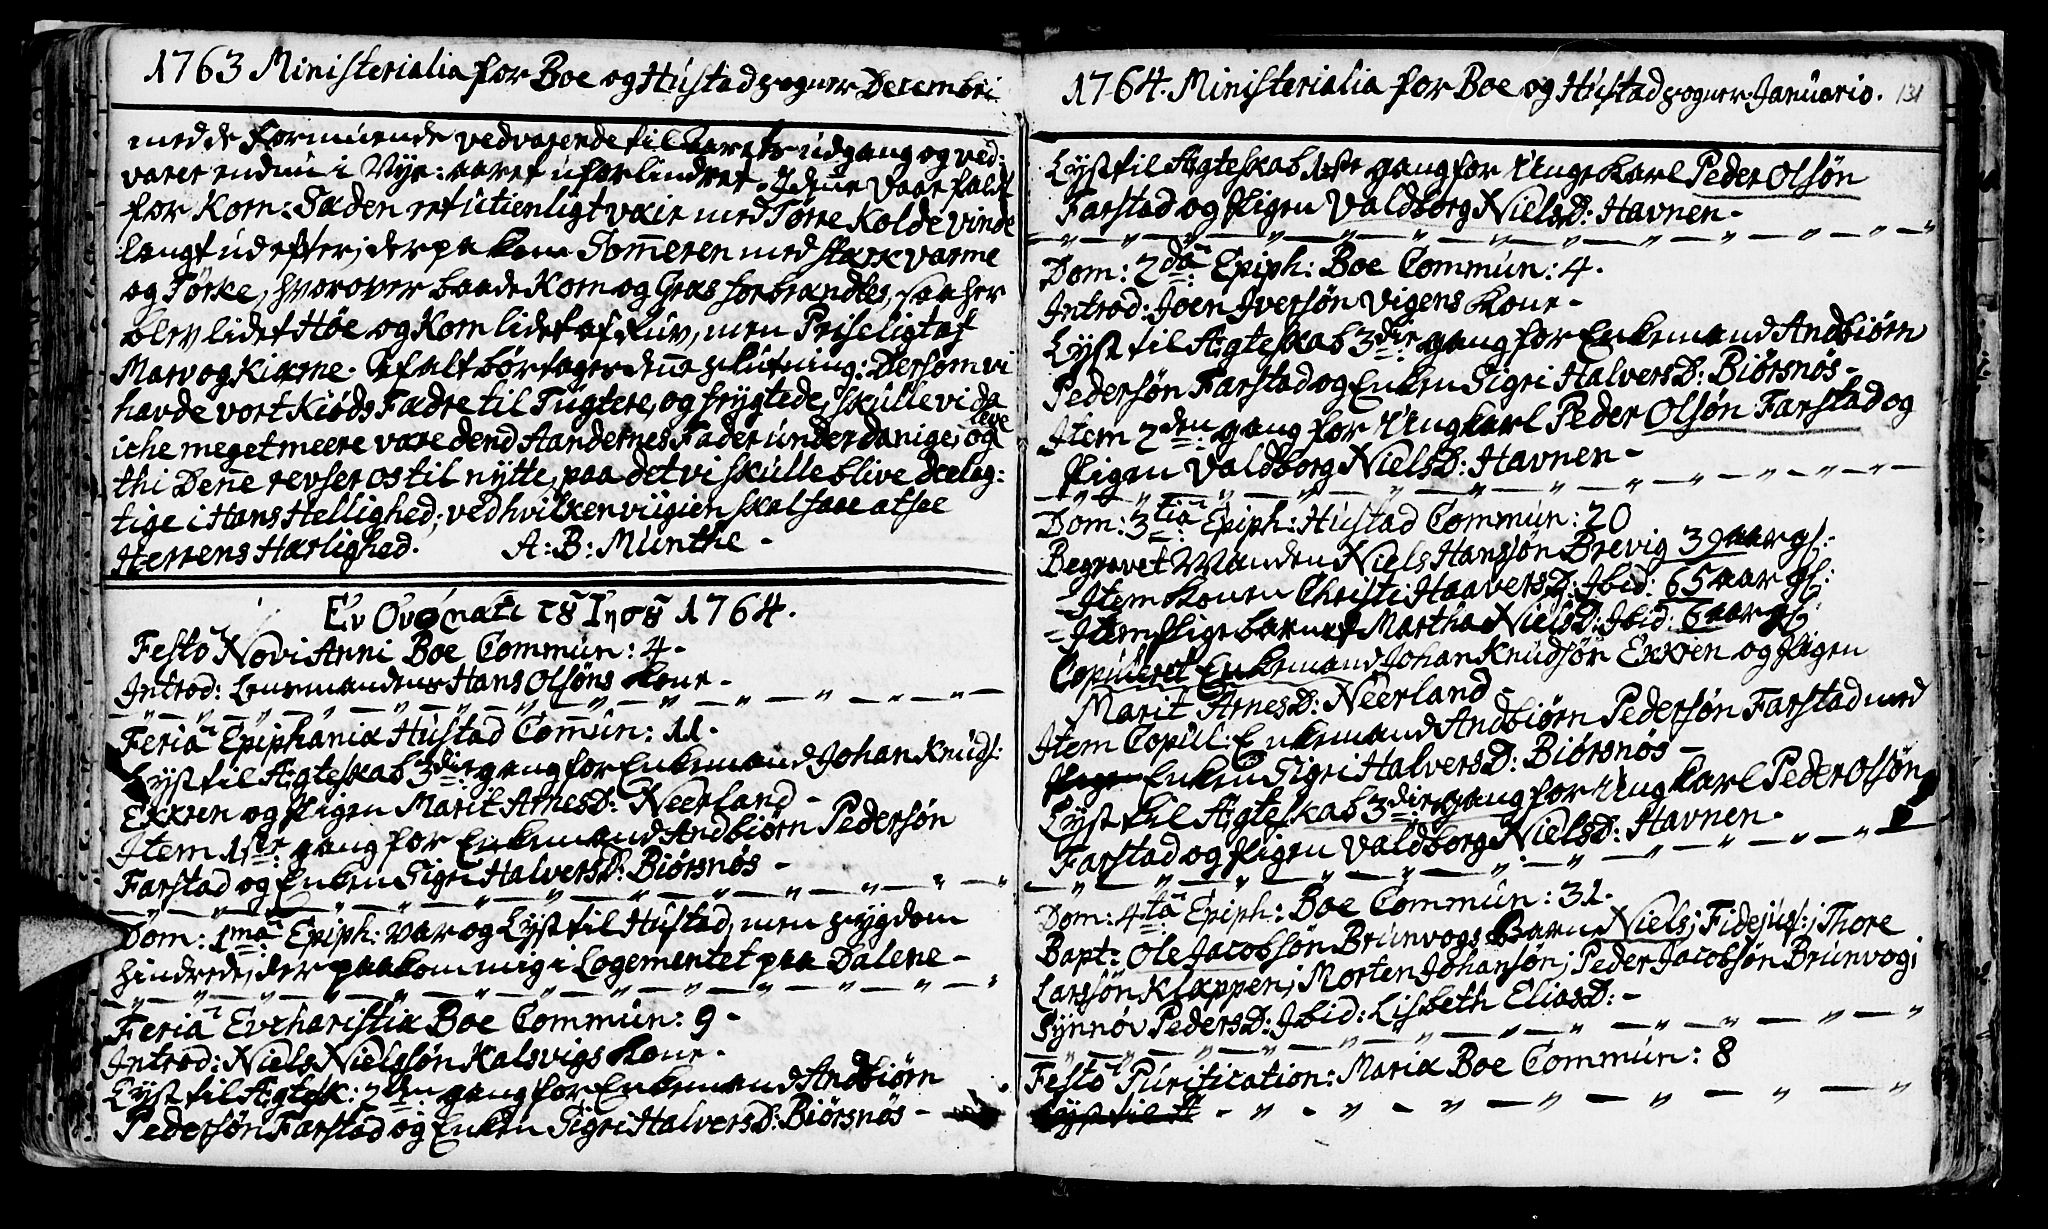 1763 Ministerialia for Boe og Hustad sogner Decembri
med de Formuende vedvarende til Aarets udgang og ved:
varer endnu i Nye: aaret uforlindret. I denne Vaar faldt
for Korn: Sæden ret utienligt vair med Tørre Kolde vinde
langt ud efter; der paa kom Som̄eren med stærk varme
og Tørke, hvorover baade Korn og Græs forbrændtes, saa her
blev lidet Høe og Korn lidet af Luv, men Priseligt af
Marv og Kierne. Af alt bør tages den̄e slutning: Dersom vi
havde vort Kiøds Fædre til Tugtere, og frygtede, skulle vi da
iche meget meere være dend Aandernes Fader underdanige, og leve
thi Den̄e revser os til nytte, paa det vi skulle blive deelag:
tige i Hans Hellighed; ved hvilken vi igien skal faae at see
Herrens Herlighed. A: B: Munthe -
Εν Ονόματι τȣ Ιησȣ 1764.
Festo Novi Anni Boe Commun: 4 -
Introd: Lensmandens Hans Olsøns Kone -
Feria Epiphaniæ Hustad Com̄un: 11.
Lyst til Ægteskab 3die gang for Enkemand Johan Knuds:
Exxren og Pigen Marit Arnesd: Neerland -
Item 1ste gang for Enkemand Andbiørn Pedersøn
Farstad og Enken Sigri Halversd: Biørsnøs -
Dom: 1ma Epiph: Var og Lyst til Hustad, men sygdom
hindrede, der paakom mig i Logementet paa Dalene -
Feria Evcharistiæ Boe Commun: 9 -
Introd: Niels Nielssøn Kalsvigs Kone -
Lyst til Ægtesk: 2den gang for Enkemand Andbiørn
Pedersøn Farstad og Enken Sigri Halversd: Biørsnøs -
1764. Ministerialia for Boe og Hustad sogner Januario. 131
Lyst til Ægteskab 1ste gang for Unge karl Peder Olsøn
Farstad og Pigen Valdborg Nielsd: Havnen -
Dom: 2da Epiph: Boe Commun: 4.
Introd: Joen Jversøn Vigens Kone -
Lyst til Ægteskab 3die gang for Enkemand Andbiørn
Pedersøn Farstad og Enken Sigri Halversd: Biørsnøs -
Item 2den gang for Ungkarl Peder Olsøn Farstad og
Pigen Valdborg Nielsd: Havnen -
Dom: 3tia Epiph: Hustad Commun: 20
Begravet Manden Niels Hansøn Brevig 39 aar gl:
- Item Konen Christi Haaversd: Ibid: 65 aar gl:
= Item Pige barnet Martha Nielsd: Ibid: 6 aar gl:
Copuleret Enkemand Johan Knudsøn Exxren og Pigen
Marit Arnesd: Neerland -
Item Copul: Enkemand Andbiørn Pedersøn Farstad med
Pigen Enken Sigri Halversd: Biørsnøs -
Lyst til Ægteskab 3die gang for Ungkarl Peder Olsøn
Farstad og Pigen Valdborg Nielsd: Havnen -
Dom: 4ta Epiph: Boe Commun: 31.
Bapt: Ole Jacobsøn Brunvogs Barn Niels; Fidejus:; Thore
Larsøn Klappen; Morten Johansøn; Peder Jacobsøn Brunvog;
Synnøv Pedersd: Ibid: Lisbeth Eliasd: -
Festo Purification: Mariæ Boe Commun: 8
Lyst til Æ